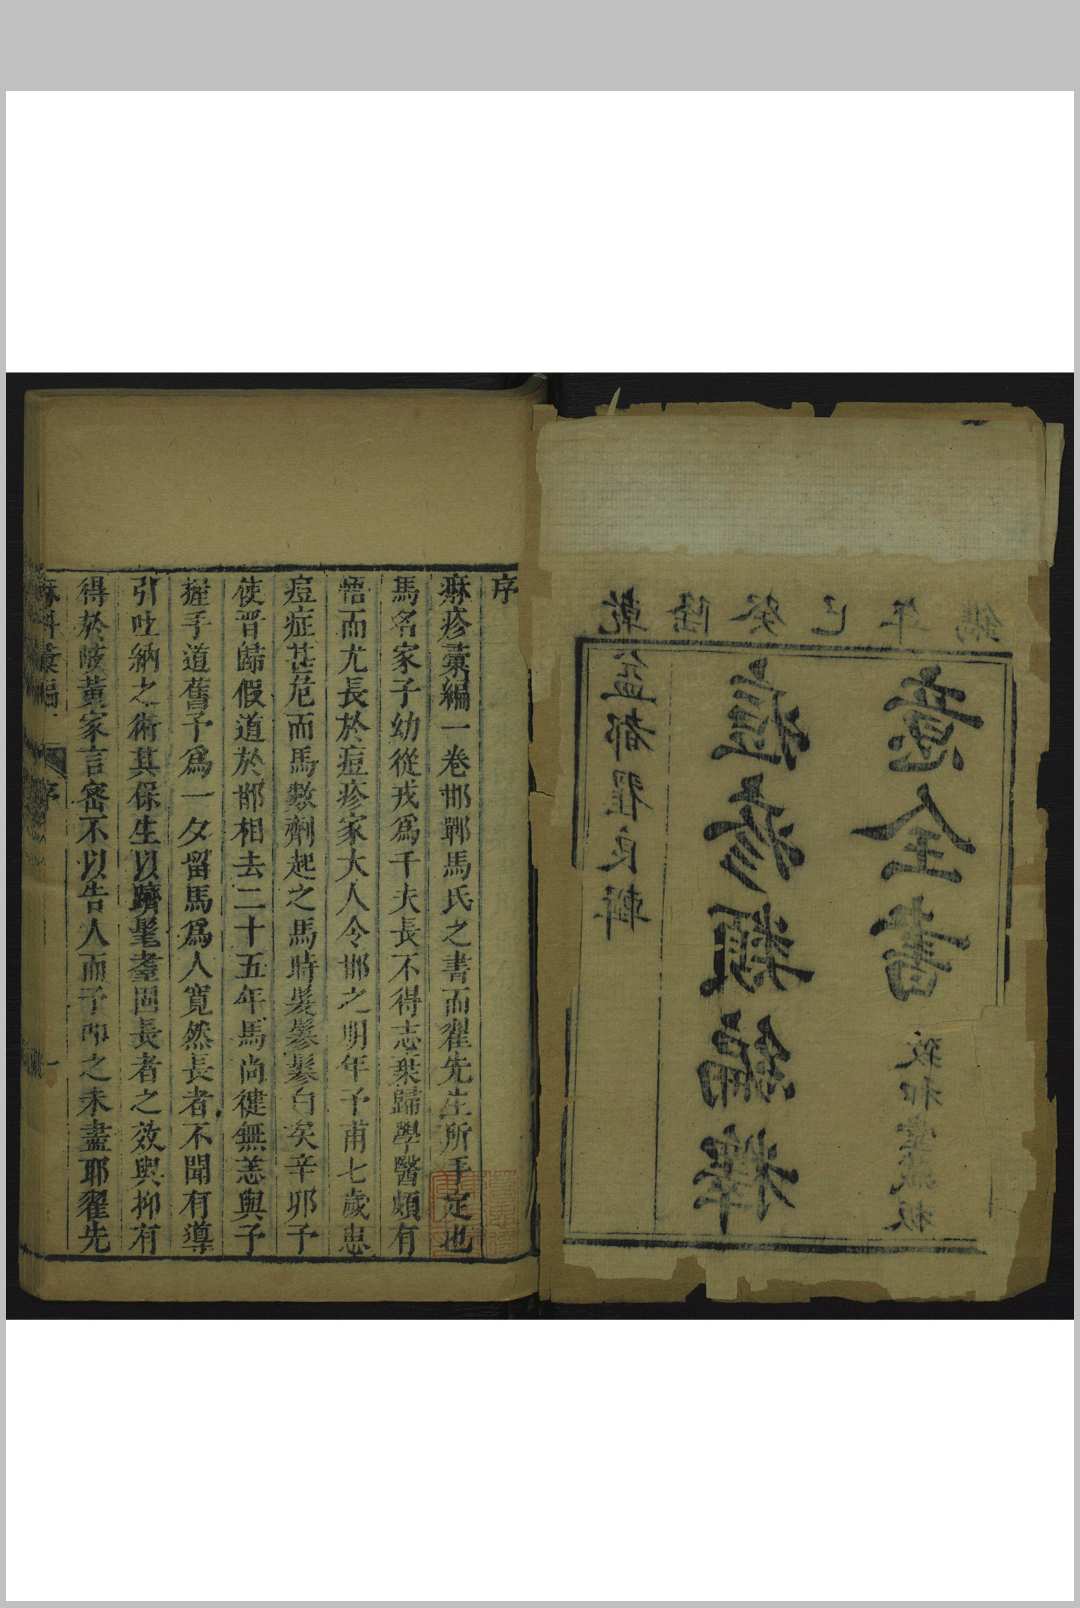 乾隆癸巳年鐫
益都翟良輯
痘疹類編釋
意全書
致和堂藏板
序
痳疹彙編一卷邯鄲馬氏之書而翟先生所手定也
馬名家子幼從戎爲千夫長不得志棄歸學醫頗有
悟而尤長於痘疹家大人令邯之明年予甫七歲患
痘症甚危而馬數劑起之馬時髮鬖鬖白矣辛卯予
使晋歸假道於邯相去二十五年馬尚健無恙與予
握手道舊予爲一夕留馬爲人寬然長者不聞有導
引吐納之術其保生以躋髦耋固長者之效與抑有
得於岐黃家言密不以告人而予叩之未盡耶翟先
痳科彙編 序 一